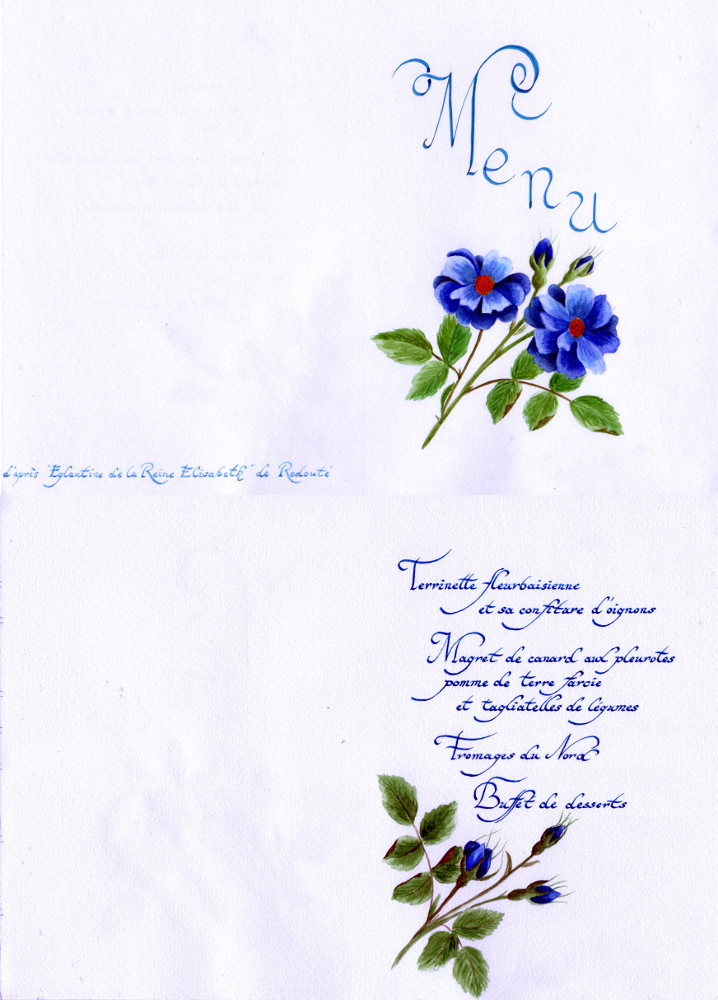 Menu
d'après "Eglantine de la Reine Elisabeth" de Redouté
Terrinette fleurbaisienne
et sa confiture d'oignons
Magret de canard aux pleurotes
pomme de terre farcie
et tagliatelles de légumes
Fromages du Nord
Buffet de desserts